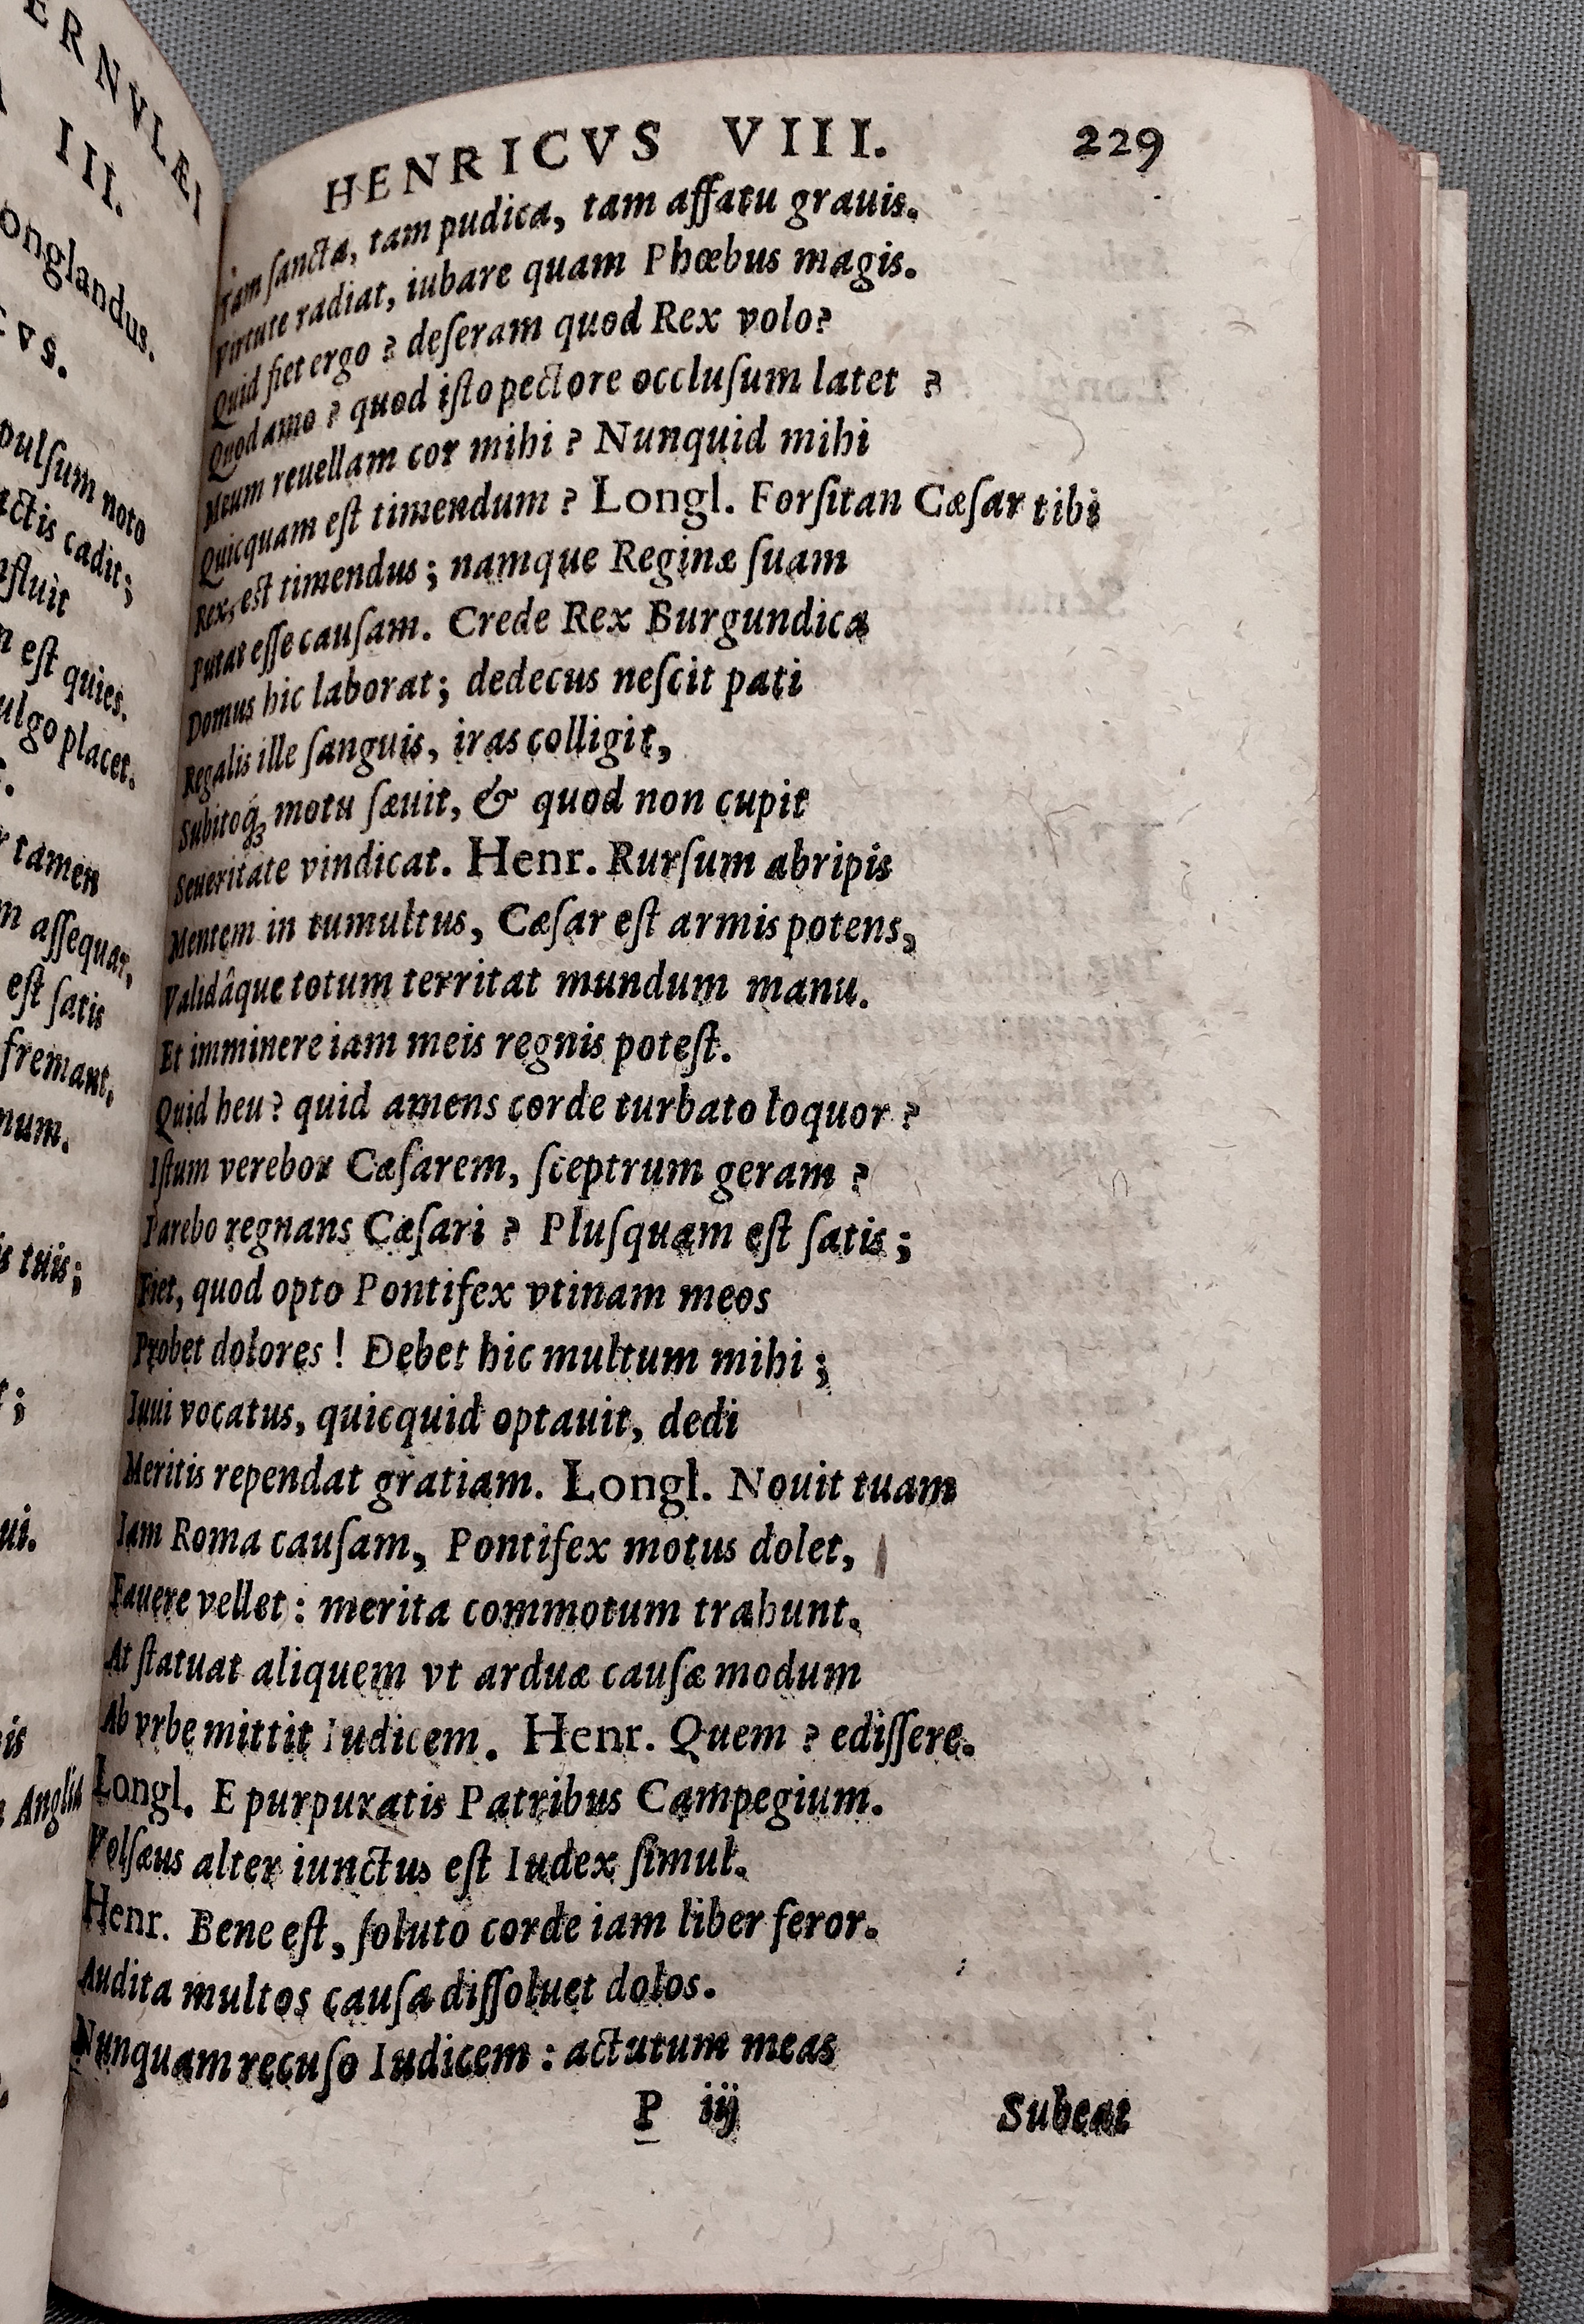 ERNVLÆI
III.
onglandus.
vs.
pulsum noto
ctis cadit;
fluit
est quies.
ulgo placet.
tamen
assequar,
est satis
fremant,
num.
tuis;
ui.
Anglia
HENRICVS VIII. 229
Tam sancta, tam pudica, tam affatu grauis.
Virtute radiat, iubare quam Phœbus magis.
Quid fiet ergo? deseram quod Rex volo?
Quod amo? quod isto pectore occlusum latet?
Meum reuellam cor mihi? Nunquid mihi
Quicquam est timendum? Longl. Forsitan Cæsar tibi
Rex, est timendus; namque Reginæ suam
Putat esse causam. Crede Rex Burgundica
Domus hic laborat; dedecus nescit pati
Regalis ille sanguis, iras colligit,
Subitoq́; motu sæuit, & quod non cupit
Seueritate vindicat. Henr. Rursum abripis
Mentem in tumultus, Cæsar est armis potens,
Validâque totum territat mundum manu.
Et imminere iam meis regnis potest.
Quid heu? quid amens corde turbato loquor?
Istum verebor Cæsarem, sceptrum geram?
Parebo regnans Cæsari? Plusquam est satis;
Fiet, quod opto Pontifex vtinam meos
Probet dolores! Debet hic multum mihi;
Iuui vocatus, quicquid optauit, dedi
Meritis rependat gratiam. Longl. Nouit tuam
Iam Roma causam, Pontifex motus dolet,
Fauere vellet: merita commotum trahunt.
At statuat aliquem vt arduæ causæ modum
Ab vrbe mittit Iudicem. Henr. Quem? edissere.
Longl. E purpuratis Patribus Campegium.
Volsæus alter iunctus est Iudex simul.
Henr. Bene est, soluto corde iam liber feror.
Audita multos causa dissoluet dolos.
Nunquam recuso Iudicem: actutum meas
P iij Subeat